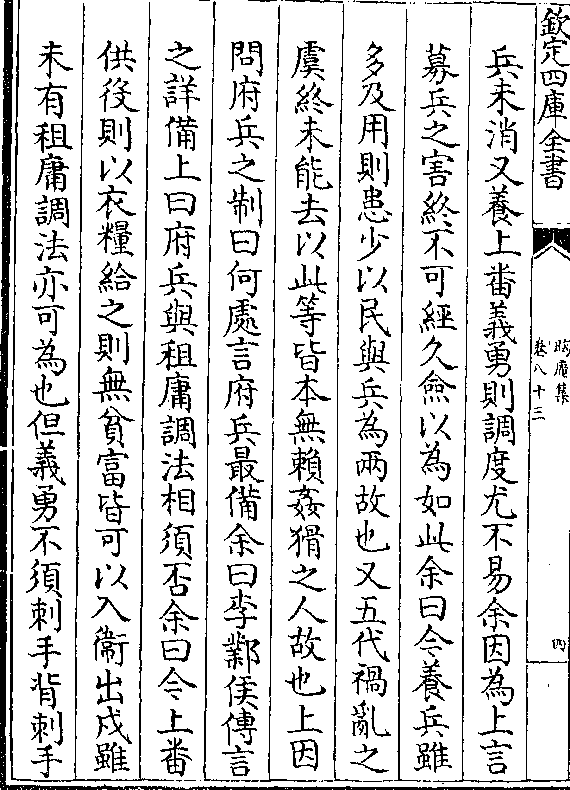 欽定四庫全書
臨川集
卷八十三
四
兵未消又養上番義勇則調度尤不易余因為上言
募兵之害終不可經久僉以為如此余曰今養兵雖
多及用則患少以民與兵為兩故也又五代禍亂之
虞終未能去以此等皆本無賴姦猾之人故也上因
問府兵之制曰何處言府兵最備余曰李鄴侯傳言
之詳備上曰府兵與租庸調法相須否余曰今上番
供役則以衣糧給之則無貧富皆可以入衞出戍雖
未有租庸調法亦可為也但義勇不須刺手背刺手